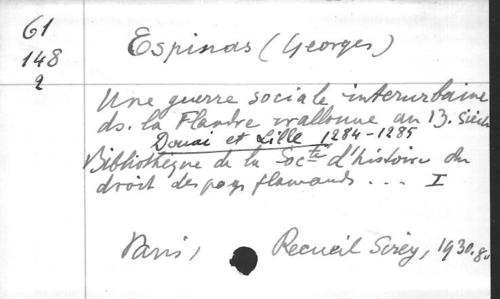 61
148
2
Espinas (Georges)
Une guerre sociale interurbaine
ds. la Flandre wallonne au 13. siècle
Douai et Lille 1284-1285
Bibliothèque de la Socté d'histoire du
droit des pays flamands... I
Paris, Recueil Sirey, 1930. 8°